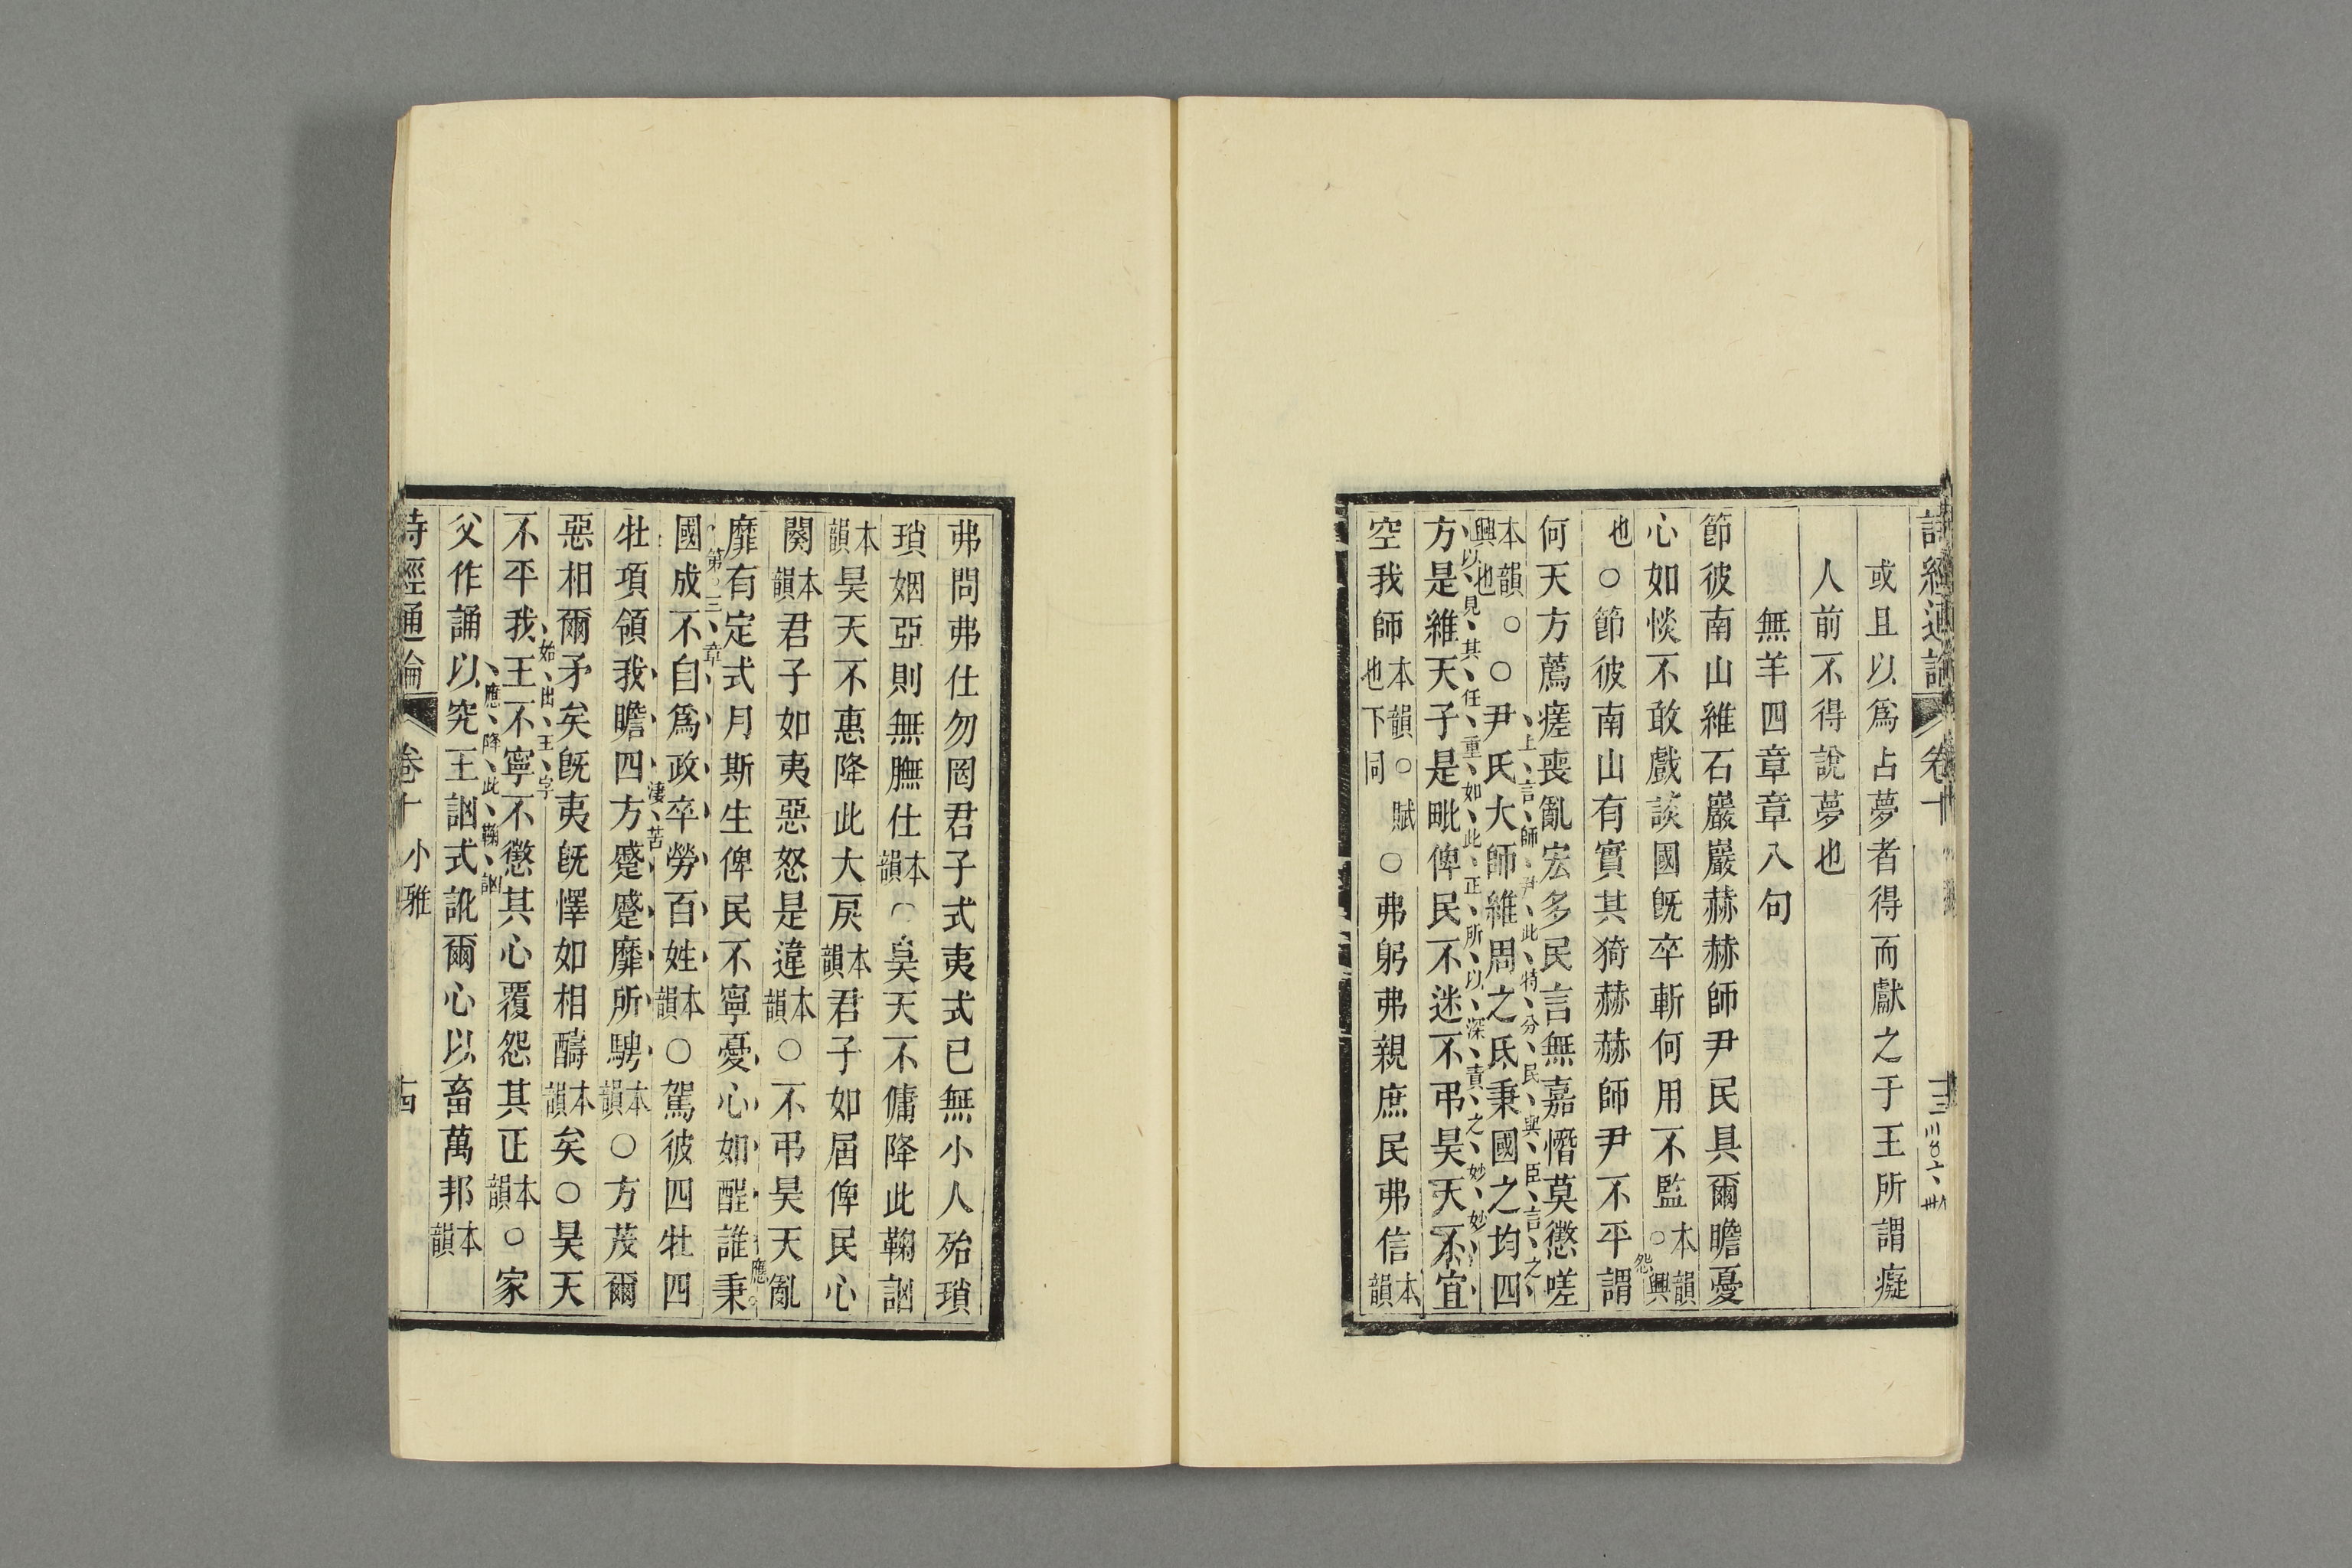 詩經通論 卷十 十三
或且以爲占夢者得而獻之于王所謂癡
人前不得說夢也
無羊四章章八句
節彼南山維石巖巖赫赫師尹民具爾瞻憂
心如惔不敢戲談國旣卒斬何用不監本韻○興
也○節彼南山有實其猗赫赫師尹不平謂
何天方薦瘥喪亂宏多民言無嘉憯莫懲嗟
上言師尹此特分民與臣言之
本韻○興也○尹氏大師維周之氐秉國之均四
以見其任重如此正所以深責之妙妙
方是維天子是毗俾民不迷不弔昊天不宜
空我師本韻○賦也下同○弗躬弗親庶民弗信本韻
弗問弗仕勿罔君子式夷式已無小人殆瑣
瑣姻亞則無膴仕本韻○昊天不傭降此鞠訩
本韻昊天不惠降此大戾本韻君子如屆俾民心
闋本韻君子如夷惡怒是違本韻○不弔昊天亂
應
靡有定式月斯生俾民不寧憂心如酲誰秉
第三章
國成不自爲政卒勞百姓本韻○駕彼四牡四
淒苦
牡項領我瞻四方蹙蹙靡所騁本韻○方茂爾
惡相爾矛矣旣夷旣懌如相醻本韻矣○昊天
始出王字
不平我王不寧不懲其心覆怨其正本韻○家
應降此鞠訩
父作誦以究王訩式訛爾心以畜萬邦本韻
詩經通論 卷十 小雅 十四